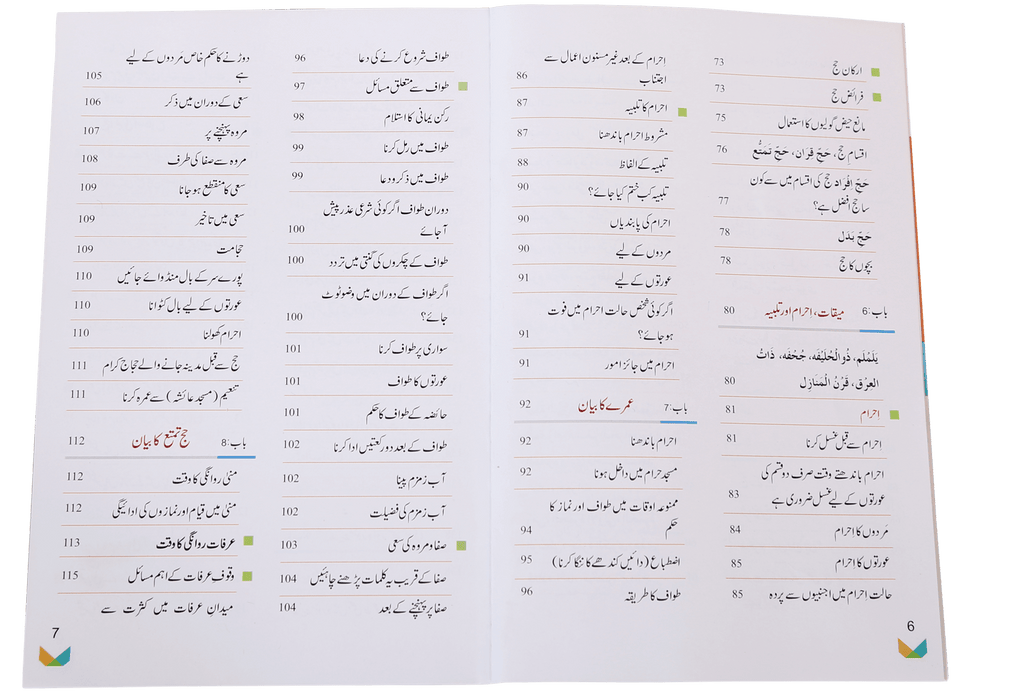 ارکان حج 73
فرائض حج 73
مانع حیض گولیوں کا استعمال 75
اقسام حج، حَجّ قِرَان، حَجّ تَمتُّع 76
حَجّ اِفْرَاد حج کی اقسام میں سے کون
سا حج افضل ہے؟ 77
حَجّ بَدَل 78
بچوں کا حج 78
باب:6 میقات، احرام اور تلبیہ 80
يَلَمْلَم، ذُوالْحُلَيْفَه، جُحْفَه، ذَاتُ
العِرْق، قَرْنُ الْمَنَازِل 80
احرام 81
احرام سے قبل غسل کرنا 81
احرام باندھتے وقت صرف دو قسم کی
عورتوں کے لیے غسل ضروری ہے 83
مَردوں کا احرام 84
عورتوں کا احرام 85
حالت احرام میں اجنبیوں سے پردہ 85
6
احرام کے بعد غیر مسنون اعمال سے
اجتناب 86
احرام کا تلبیہ 87
مشروط احرام باندھنا 87
تلبیہ کے الفاظ 88
تلبیہ کب ختم کیا جائے؟ 90
احرام کی پابندیاں 90
مردوں کے لیے 90
عورتوں کے لیے 91
اگر کوئی شخص حالت احرام میں فوت
ہو جائے؟ 91
احرام میں جائز امور 91
باب:7 عمرے کا بیان 92
احرام باندھنا 92
مسجد حرام میں داخل ہونا 92
ممنوعہ اوقات میں طواف اور نماز کا
حکم 94
اضطباع (دائیں کندھے کا ننگا کرنا) 95
طواف کا طریقہ 96
طواف شروع کرنے کی دعا 96
طواف سے متعلق مسائل 97
رکن یمانی کا استلام 98
طواف میں رمل کرنا 99
طواف میں ذکر و دعا 99
دوران طواف اگر کوئی شرعی عذر پیش
آ جائے 100
طواف کے چکروں کی گنتی میں تردد 100
اگر طواف کے دوران میں وضو ٹوٹ
جائے؟ 100
سواری پر طواف کرنا 101
عورتوں کا طواف 101
حائضہ کے طواف کا حکم 101
طواف کے بعد دو رکعتیں ادا کرنا 102
آب زمزم پینا 102
آب زمزم کی فضیلت 102
صفا و مروہ کی سعی 103
صفا کے قریب یہ کلمات پڑھنے چاہئیں 104
صفا پر پہنچنے کے بعد 104
دوڑنے کا حکم خاص مَردوں کے لیے
ہے 105
سعی کے دوران میں ذکر 106
مروہ پہنچنے پر 107
مروہ سے صفا کی طرف 108
سعی کا منقطع ہو جانا 109
سعی میں تاخیر 109
حجامت 109
پورے سر کے بال منڈوائے جائیں 110
عورتوں کے لیے بال کٹوانا 110
احرام کھولنا 110
حج سے قبل مدینہ جانے والے حجاج کرام 111
تنعیم (مسجد عائشہ) سے عمرہ کرنا 111
باب:8 حج تمتع کا بیان 112
منیٰ روانگی کا وقت 112
منیٰ میں قیام اور نمازوں کی ادائیگی 112
عرفات روانگی کا وقت 113
وقوفِ عرفات کے اہم مسائل 115
میدان عرفات میں کثرت سے
7